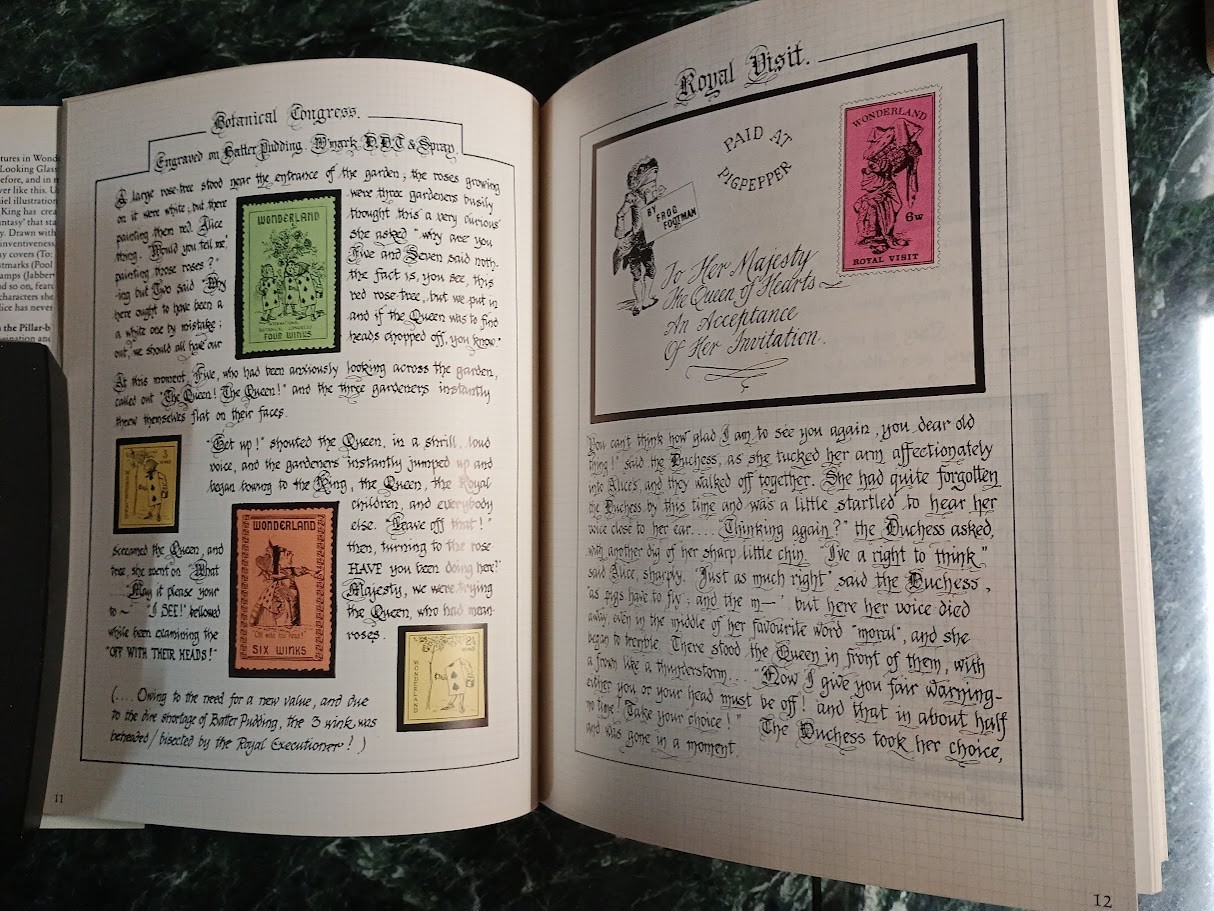 tures in Wond
Looking Glass
efore, and in m
ver like this. U
niel illustration
King has crea
antasy' that sta
y. Drawn with
inventiveness,
ny covers (To:
tmarks (Pool
amps (Jabber
nd so on, featu
characters she
lice has never
n the Pillar-b
gination and
Botanical Congress.
Engraved on Batter Pudding. W'mark D.D.T & Spray.
A large rose-tree stood near the entrance of the garden; the roses growing
on it were white; but there were three gardeners busily
painting them red. Alice thought this a very curious
thing. "Would you tell me," she asked "why are you
painting those roses?" Five and Seven said noth-
ing but Two said "Why the fact is, you see, this
here ought to have been a red rose-tree, but we put in
a white one by mistake; and if the Queen was to find
out, we should all have our heads chopped off, you know."
WONDERLAND
INTERNATIONAL
BOTANICAL CONGRESS
FOUR WINKS
At this moment, Five, who had been anxiously looking across the garden,
called out "The Queen! The Queen!" and the three gardeners instantly
threw themselves flat on their faces.
"Get up!" shouted the Queen, in a shrill, loud
voice, and the gardeners instantly jumped up and
began bowing to the King, the Queen, the Royal
children, and everybody
else. "Leave off that!"
screamed the Queen, and then, turning to the rose
tree, she went on "What HAVE you been doing here?"
"May it please your Majesty, we were trying
to ~" "I SEE!" bellowed the Queen, who had mean-
while been examining the roses.
"OFF WITH THEIR HEADS!"
3
WONDERLAND
"Off with his head!"
SIX WINKS
2½
WONDERLAND
(.... Owing to the need for a new value, and due
to the dire shortage of Batter Pudding, the 3 wink, was
beheaded/bisected by the Royal Executioner! )
11
Royal Visit.
PAID AT
PIGPEPPER
BY FROG
FOOTMAN
WONDERLAND
6w
ROYAL VISIT
To Her Majesty
The Queen of Hearts ~
An Acceptance
Of Her Invitation.
You can't think how glad I am to see you again, you dear old
thing!" said the Duchess, as she tucked her arm affectionately
into Alice's, and they walked off together. She had quite forgotten
the Duchess by this time and was a little startled to hear her
voice close to her ear.... "Thinking again?" the Duchess asked,
with another dig of her sharp little chin. "I've a right to think"
said Alice, sharply. "Just as much right" said the Duchess,
"as pigs have to fly; and the m—" but here her voice died
away, even in the middle of her favourite word "moral", and she
began to tremble. There stood the Queen in front of them, with
a frown like a thunderstorm... "Now I give you fair warning-
either you or your head must be off! and that in about half
no time! Take your choice!" The Duchess took her choice,
and was gone in a moment.
12